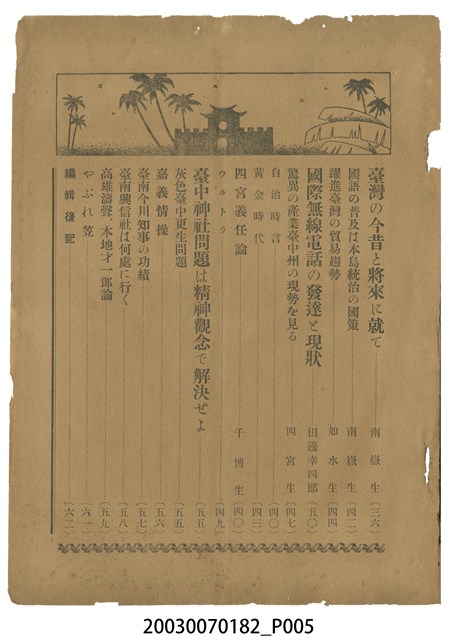 臺灣の今昔と將來に就て 南嶽生 〔三六〕
國語の普及は本島統治の國策 南嶽生 〔四二〕
躍進臺灣の貿易趨勢 如水生 〔四四〕
國際無線電話の發達と現狀 田邊幸四郎 〔五〇〕
驚異の產業臺中州の現勢を見る 四宮生 〔四七〕
自治時言 〔四〇〕
黃金時代 〔四三〕
四宮義任論 千博生 〔四〇〕
ウルトラ 〔四九〕
臺中神社問題は精神觀念で解決せよ 〔五五〕
灰色臺中更生問題 〔五五〕
嘉義情操 〔五六〕
臺南今川知事の功績 〔五七〕
臺南興信社は何處に行く 〔五八〕
高雄濤聲、本地才一郎論 〔五九〕
やぶれ笠 〔六一〕
編輯後記 〔六二〕
20030070182_P005